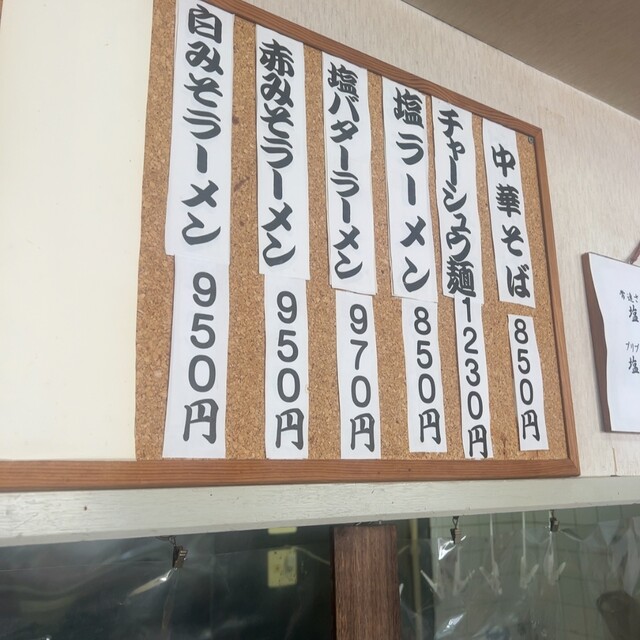 中華そば
850円
チャーシュウ麺
1230円
塩ラーメン
850円
塩バターラーメン
970円
赤みそラーメン
950円
白みそラーメン
950円
塩
塩